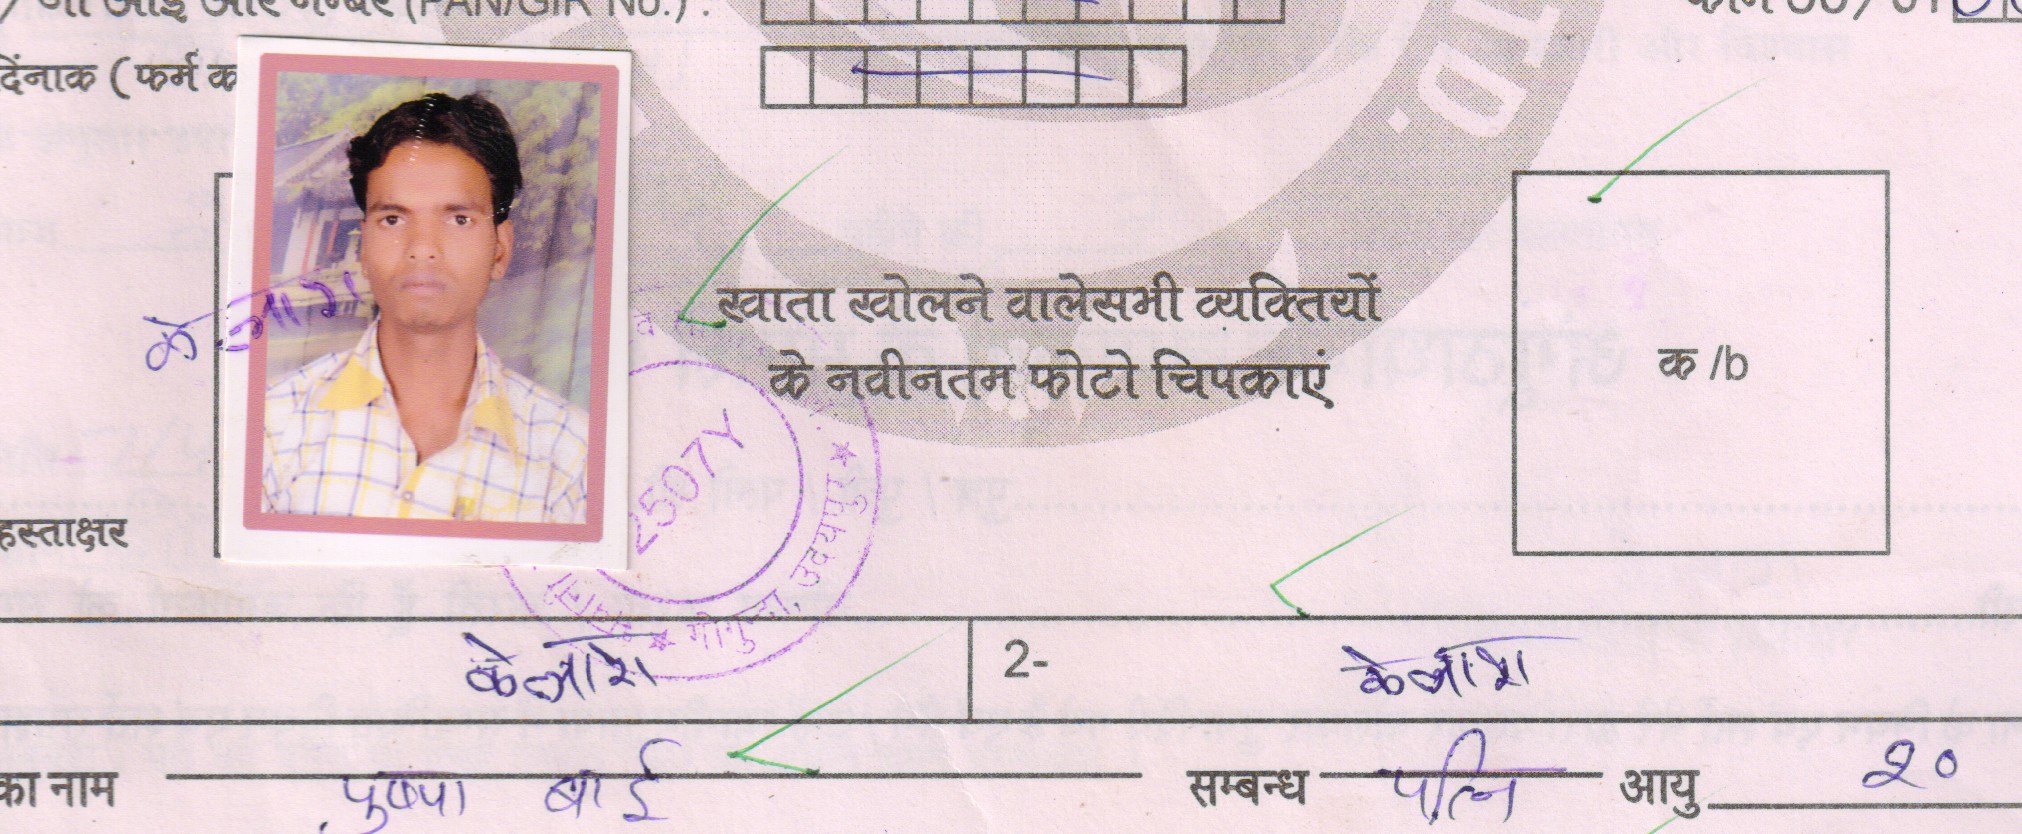 जी आई आर नम्बर (PAN/GIR No.) :
TD.
दिंनाक ( फर्म क
कैलाश
खाता खोलने वालेसभी व्यक्तियों
के नवीनतम फोटो चिपकाएं
क /b
2507Y
★ गोगुन्दा, उदयपुर ★
हस्ताक्षर
केलाश 2- केलाश
का नाम पुष्पा बाई सम्बन्ध पत्नि आयु २०